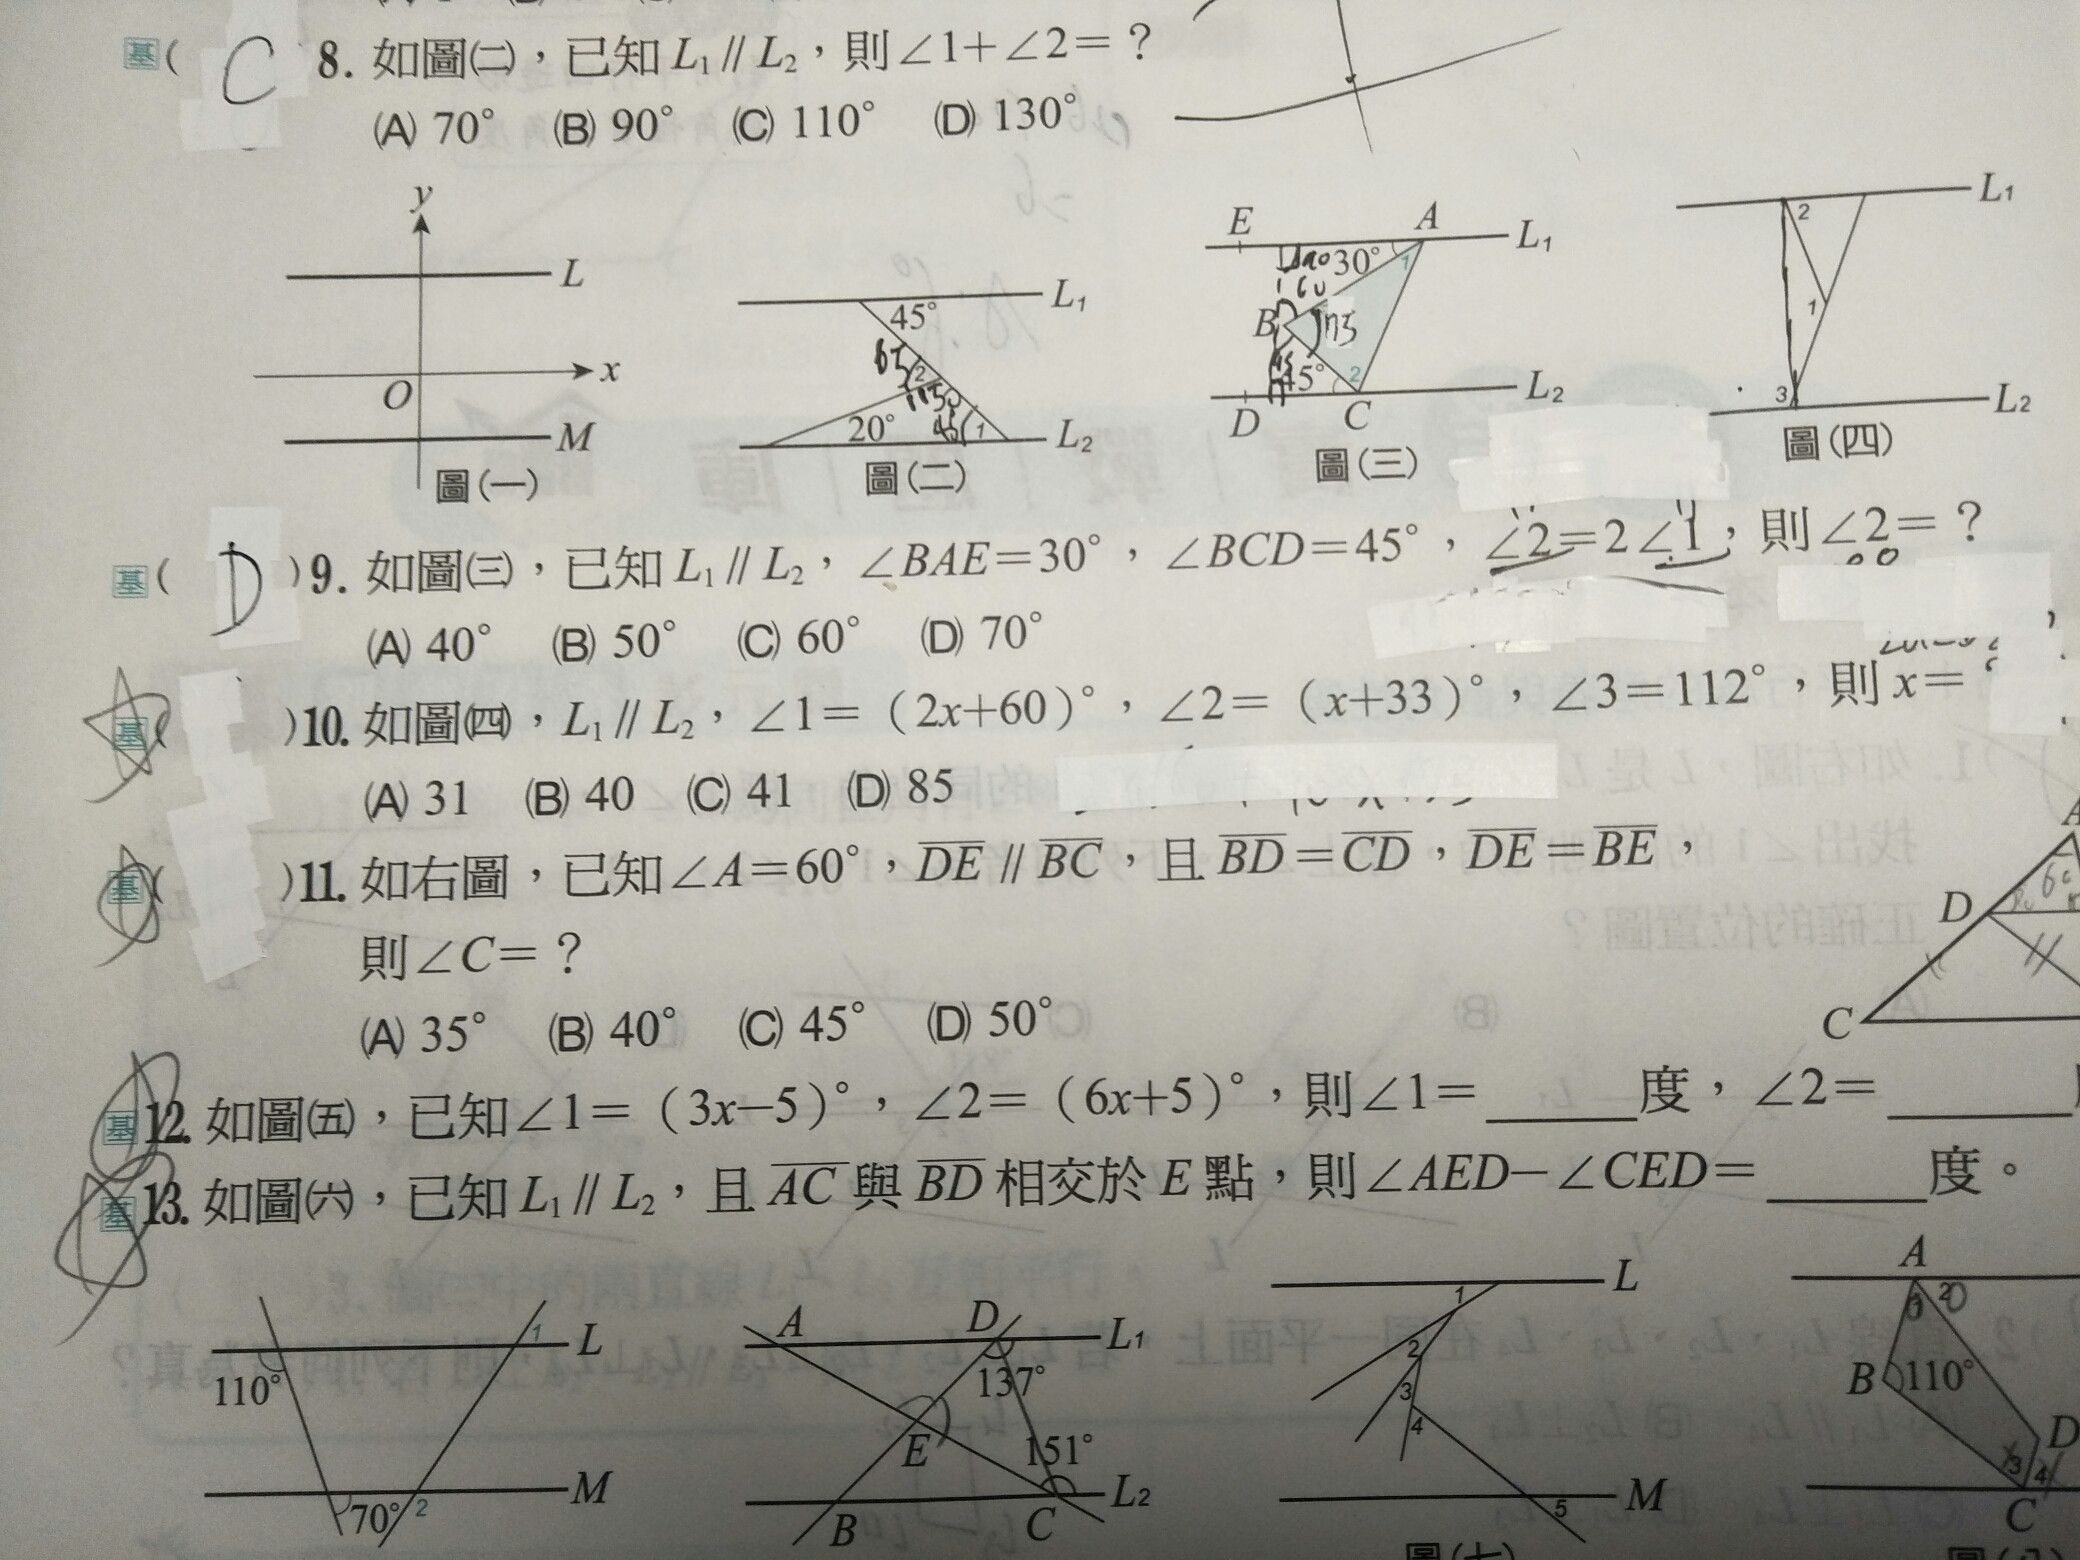 基( C 8. 如圖㈡，已知 L₁ // L₂，則∠1+∠2=？
(A) 70° (B) 90° (C) 110° (D) 130°
y
L
x
O
M
圖(一)
L₁
45°
65
2
115
20°
45
1
L₂
圖(二)
E A L₁
90 30° 1
60
B 75
45
45° 2
D C L₂
圖(三)
L₁
2
1
3
L₂
圖(四)
基( D )9. 如圖㈢，已知 L₁ // L₂，∠BAE=30°，∠BCD=45°，∠2=2∠1，則∠2=？
(A) 40° (B) 50° (C) 60° (D) 70°
基( )10. 如圖㈣，L₁ // L₂，∠1=（2x+60）°，∠2=（x+33）°，∠3=112°，則 x=
(A) 31 (B) 40 (C) 41 (D) 85
基( )11. 如右圖，已知∠A=60°，DE // BC，且 BD=CD，DE=BE，
則∠C=？
(A) 35° (B) 40° (C) 45° (D) 50°
A
D
C
基 12. 如圖㈤，已知∠1=（3x−5）°，∠2=（6x+5）°，則∠1=_____度，∠2=_____
基 13. 如圖㈥，已知 L₁ // L₂，且 AC 與 BD 相交於 E 點，則∠AED−∠CED=_____度。
1 L
110°
M
70° 2
A D L₁
137°
E 151°
B C L₂
L
1
2
3
4
M
5
圖(七)
A
2
B 110°
D
3 4
C
圖(八)